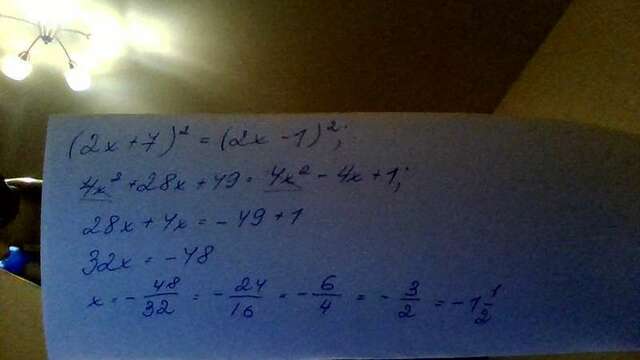 (2x+7)² = (2x-1)²;
4x²+28x+49 = 4x²-4x+1;
28x+4x = -49+1
32x = -48
x = -48/32 = -24/16 = -6/4 = -3/2 = -1 1/2